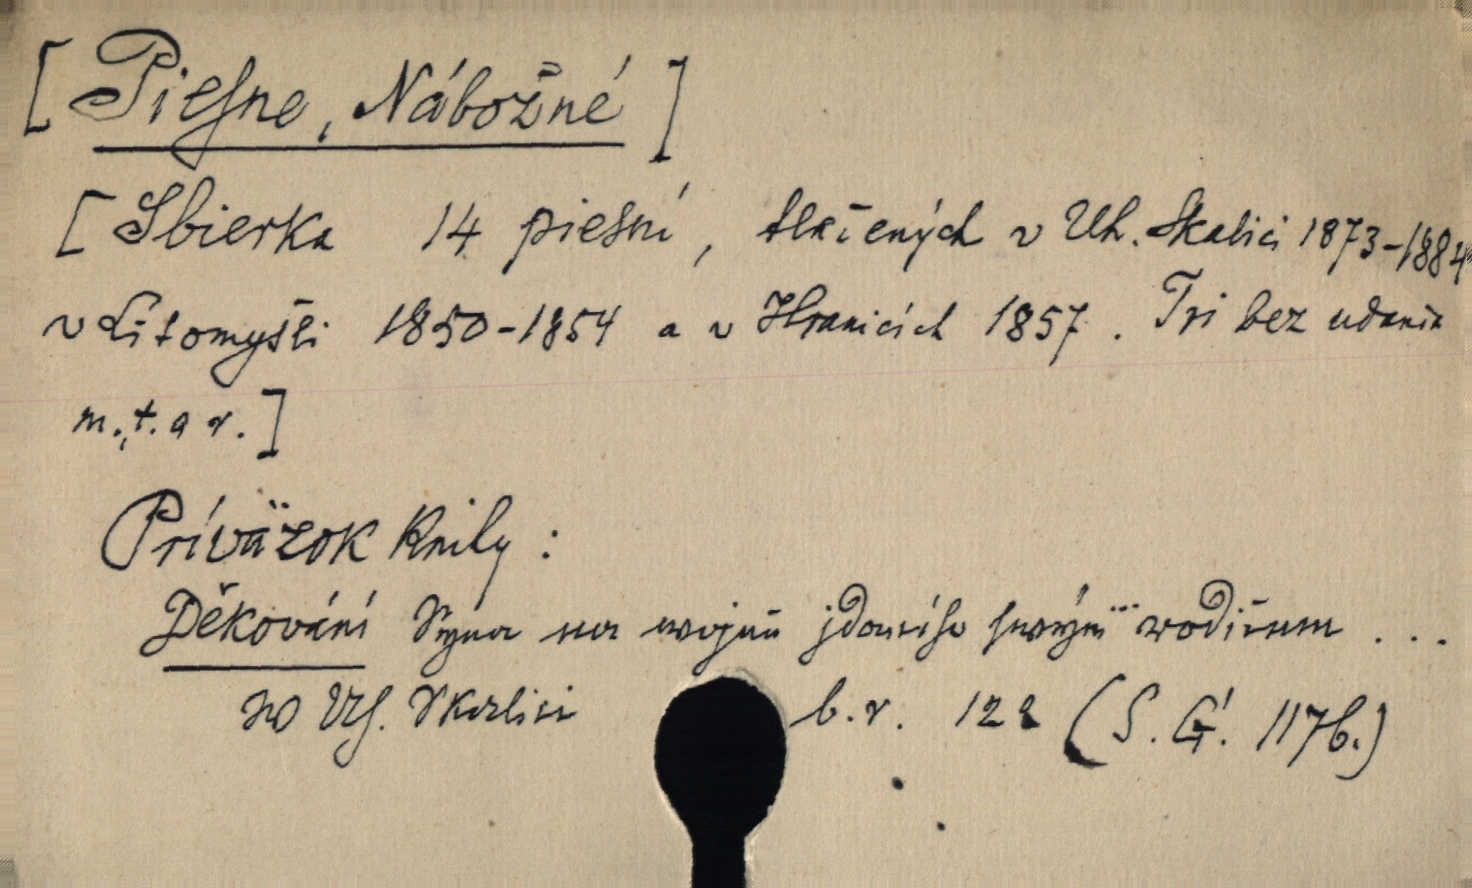 [ Piesne, Nábožné ]
[ Sbierka 14 piesní, tlačených v Uh. Skalici 1873-1884
v Litomyšli 1850-1854 a v Hranicích 1857. Tri bez udania
m., t. a r. ]
Príväzok knihy :
Děkování Syna na wojnu jdoucýho swým rodičum ...
w Uh. Skalici b. r. 12° (S. G. 117b.)